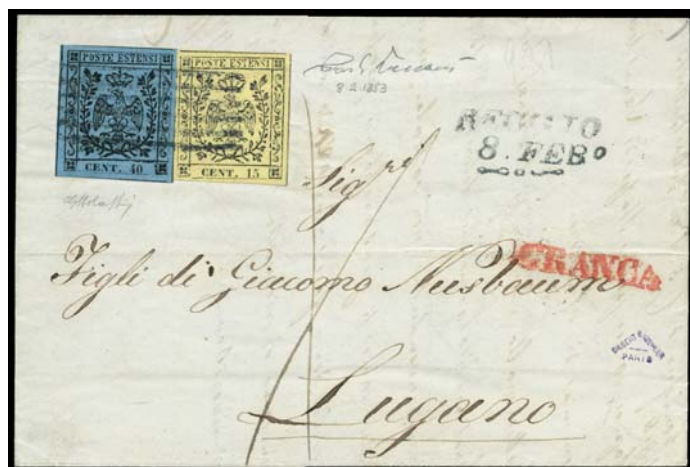 POSTE ESTENSI
CENT. 40
POSTE ESTENSI
CENT. 15
8 2 1853
REGGIO
8. FEBº
Sig.ri
FRANCA
Figli di Giacomo Nusbaum
PARIS
Lugano